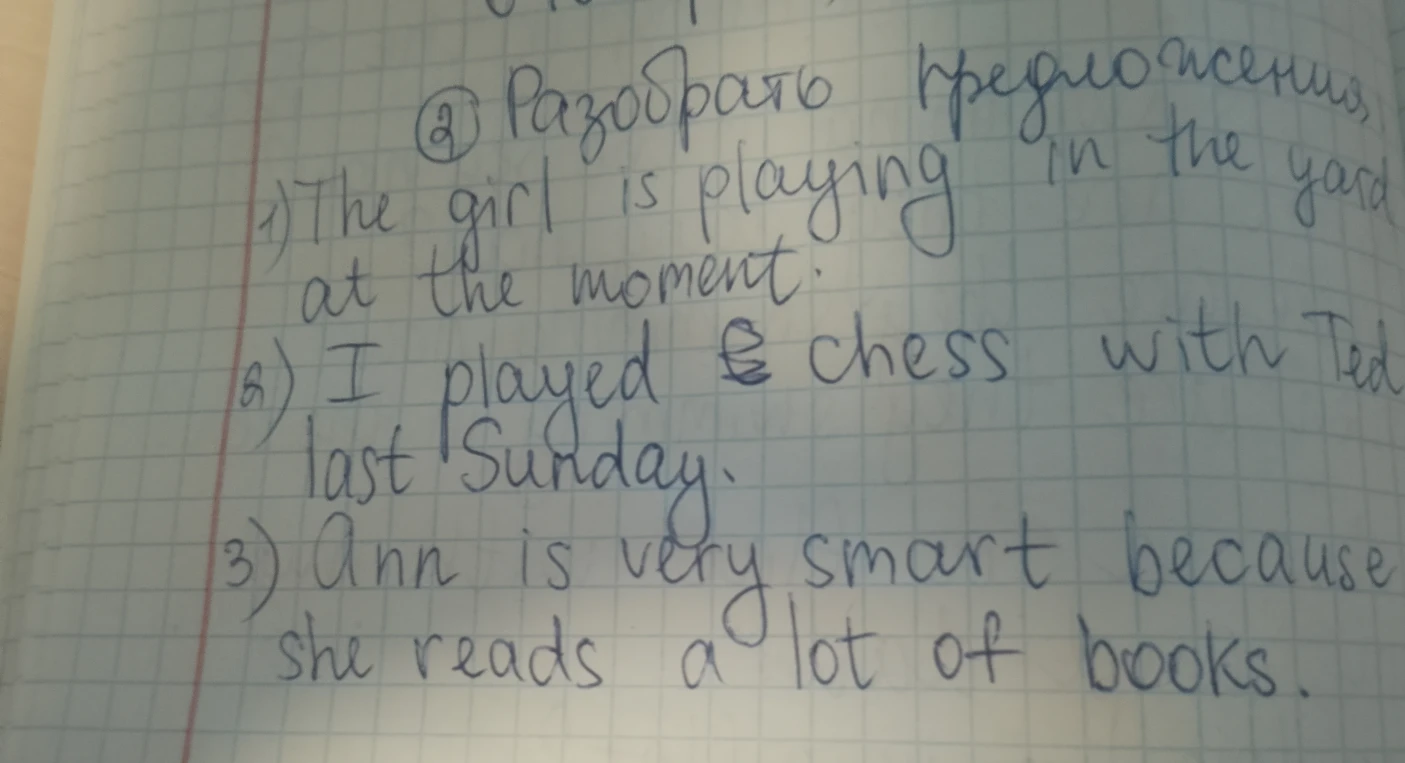 ② Разобрать предложения,
1) The girl is playing in the yard
at the moment.
2) I played chess with Ted
last Sunday.
3) Ann is very smart because
she reads a lot of books.